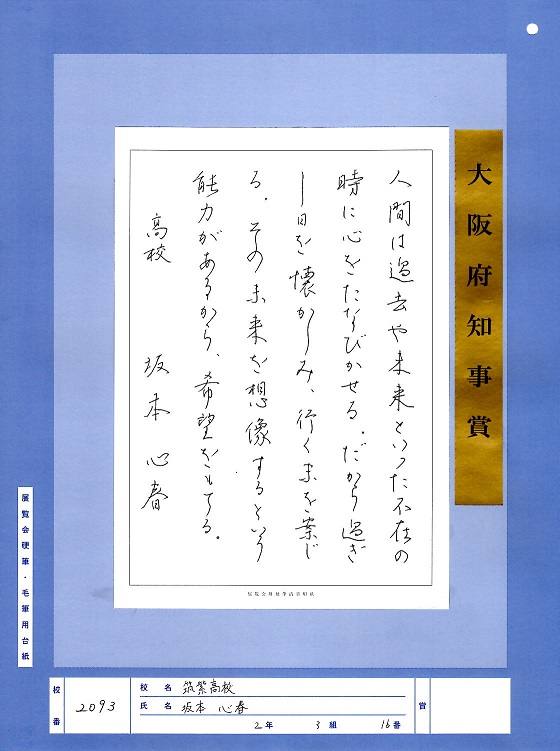 大阪府知事賞
人間は過去や未来といった不在の
時に心をたなびかせる。だから過ぎ
し日を懐かしみ、行く末を案じ
る。その未来を想像するという
能力があるから、希望をもてる。
高校 坂本心春
展覧会硬筆・毛筆用台紙
校番 2093
校名 筑紫高校
氏名 坂本 心春
2年 3組 16番
賞